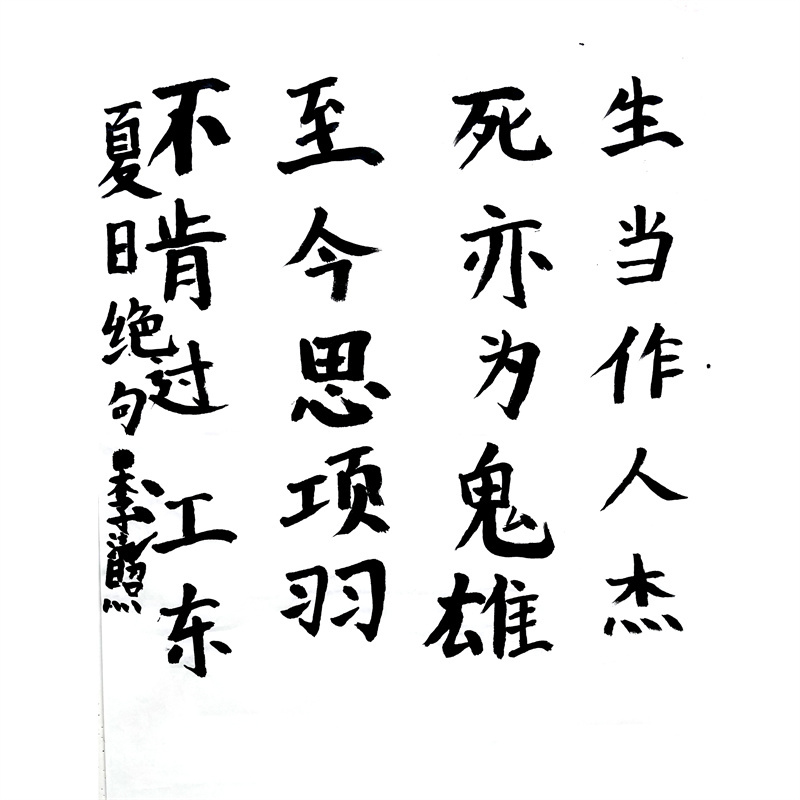 生当作人杰
死亦为鬼雄
至今思项羽
不肯过江东
夏日绝句 李清照